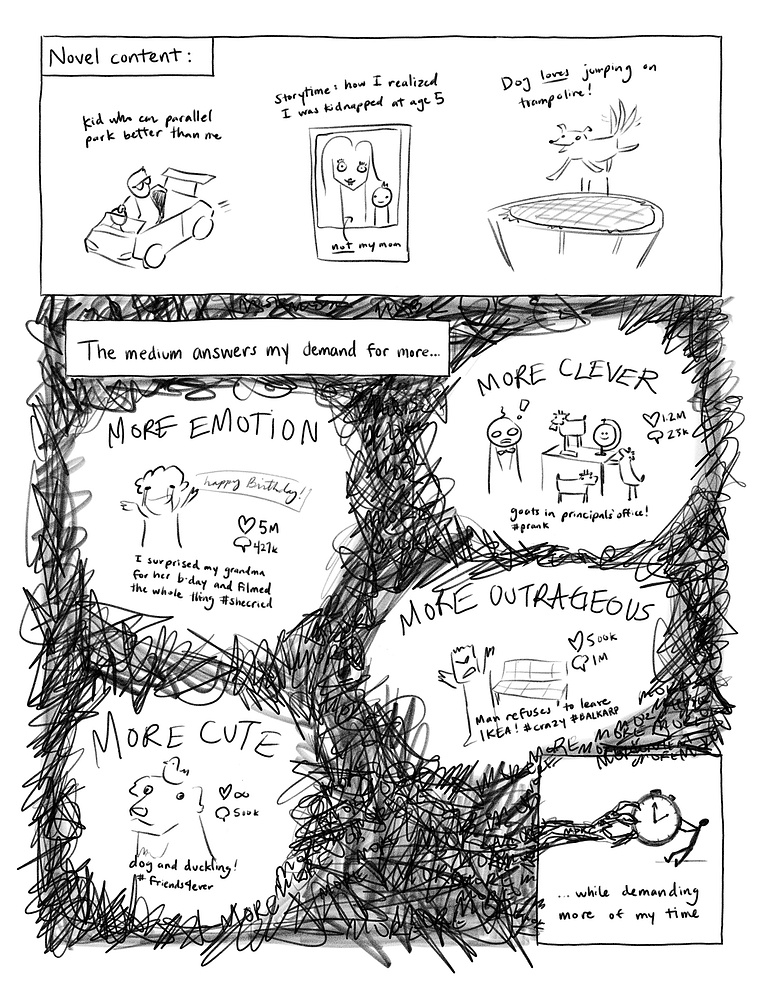 Novel content:
Kid who can parallel
park better than me
Storytime: how I realized
I was kidnapped at age 5
not my mom
Dog loves jumping on
trampoline!
The medium answers my demand for more...
MORE EMOTION
happy Birthday!
5M
427k
I surprised my grandma
for her b-day and filmed
the whole thing #shecried
MORE CLEVER
!
1.2M
25k
goats in principals office!
#prank
MORE OUTRAGEOUS
500k
1M
Man refuses to leave
IKEA! #crazy #BALKARP
MORE CUTE
∞
500k
dog and duckling!
#Friends4ever
MORE
MORE
MORE
MORE
MORE
... while demanding
more of my time